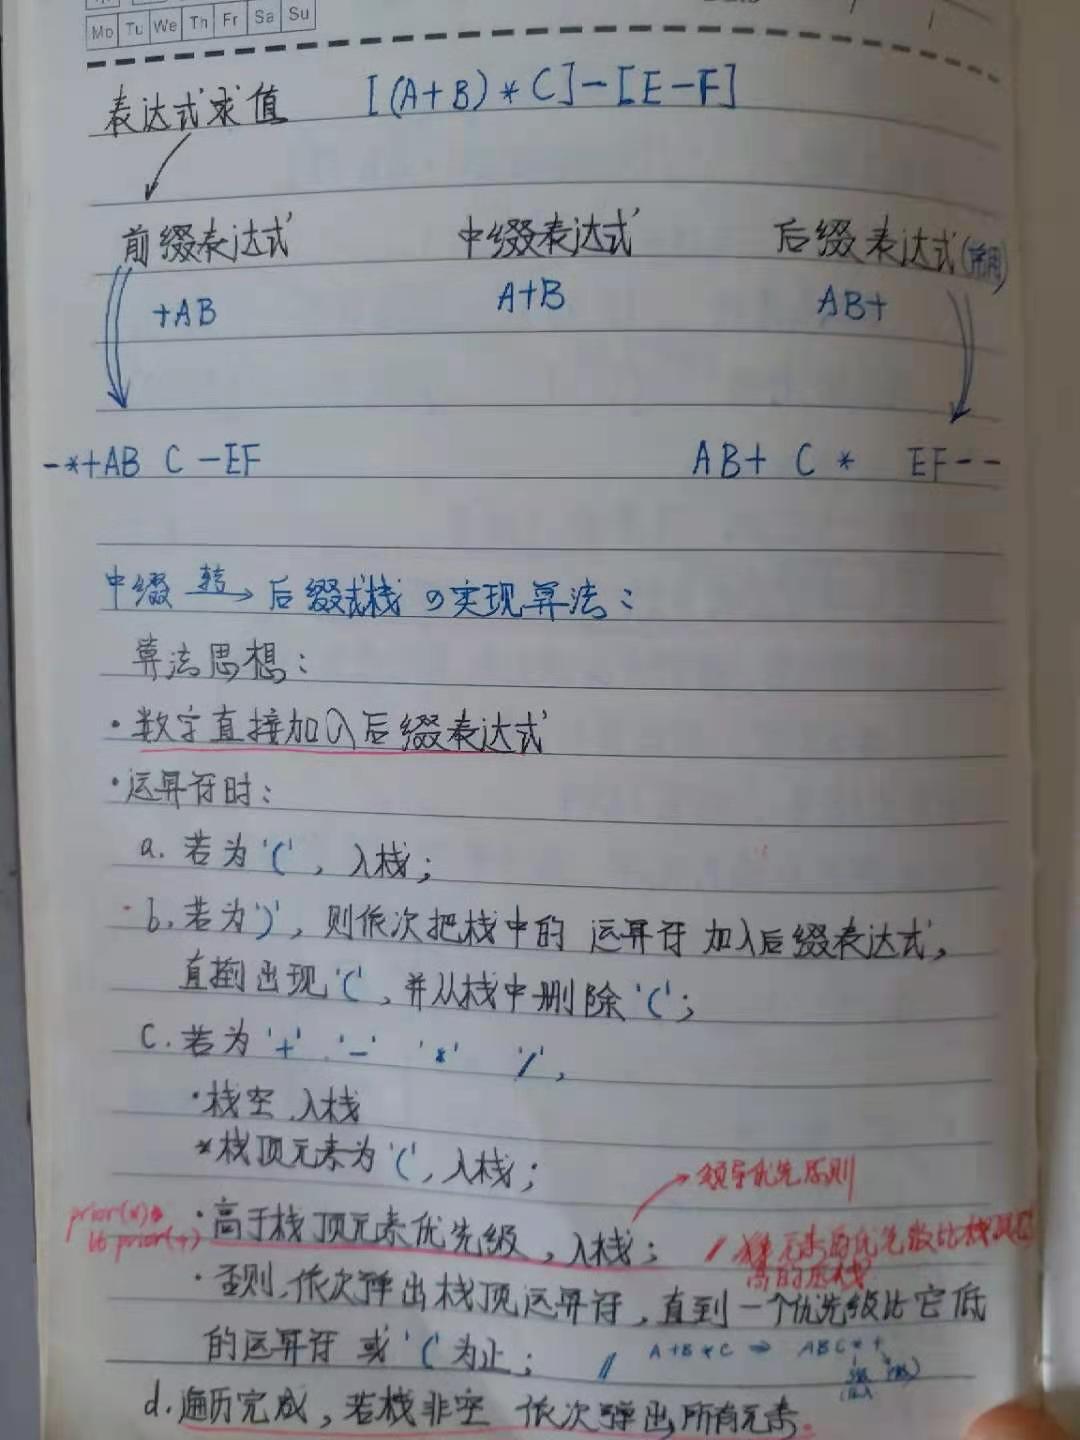 Mo Tu We Th Fr Sa Su
表达式求值 [(A+B)*C]-[E-F]
前缀表达式 中缀表达式 后缀表达式(常用)
+AB A+B AB+
-*+AB C -EF AB+ C * EF--
中缀 转→ 后缀式栈の实现算法:
算法思想:
·数字直接加入后缀表达式
·运算符时:
a. 若为'(', 入栈;
b. 若为')', 则依次把栈中的 运算符 加入后缀表达式,
直到出现'(', 并从栈中删除'(';
C. 若为'+' '-' '*' '/',
·栈空,入栈
*栈顶元素为'(', 入栈;
→领导优先原则
·高于栈顶元素优先级, 入栈;
高的压栈
·否则,依次弹出栈顶运算符, 直到一个优先级比它低
的运算符 或'('为止; // A+B*C ⇒ ABC*+
d. 遍历完成, 若栈非空 依次弹出所有元素.